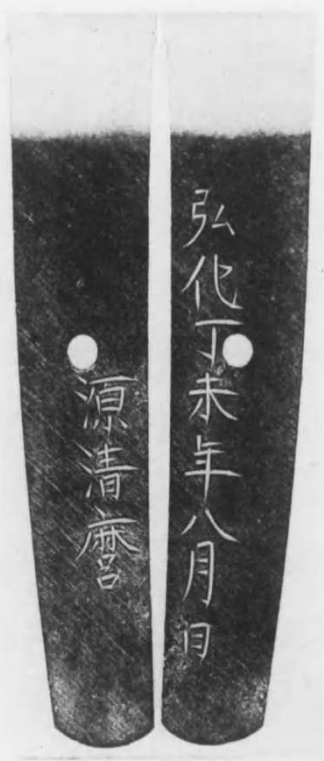 弘化丁未年八月日
源清麿